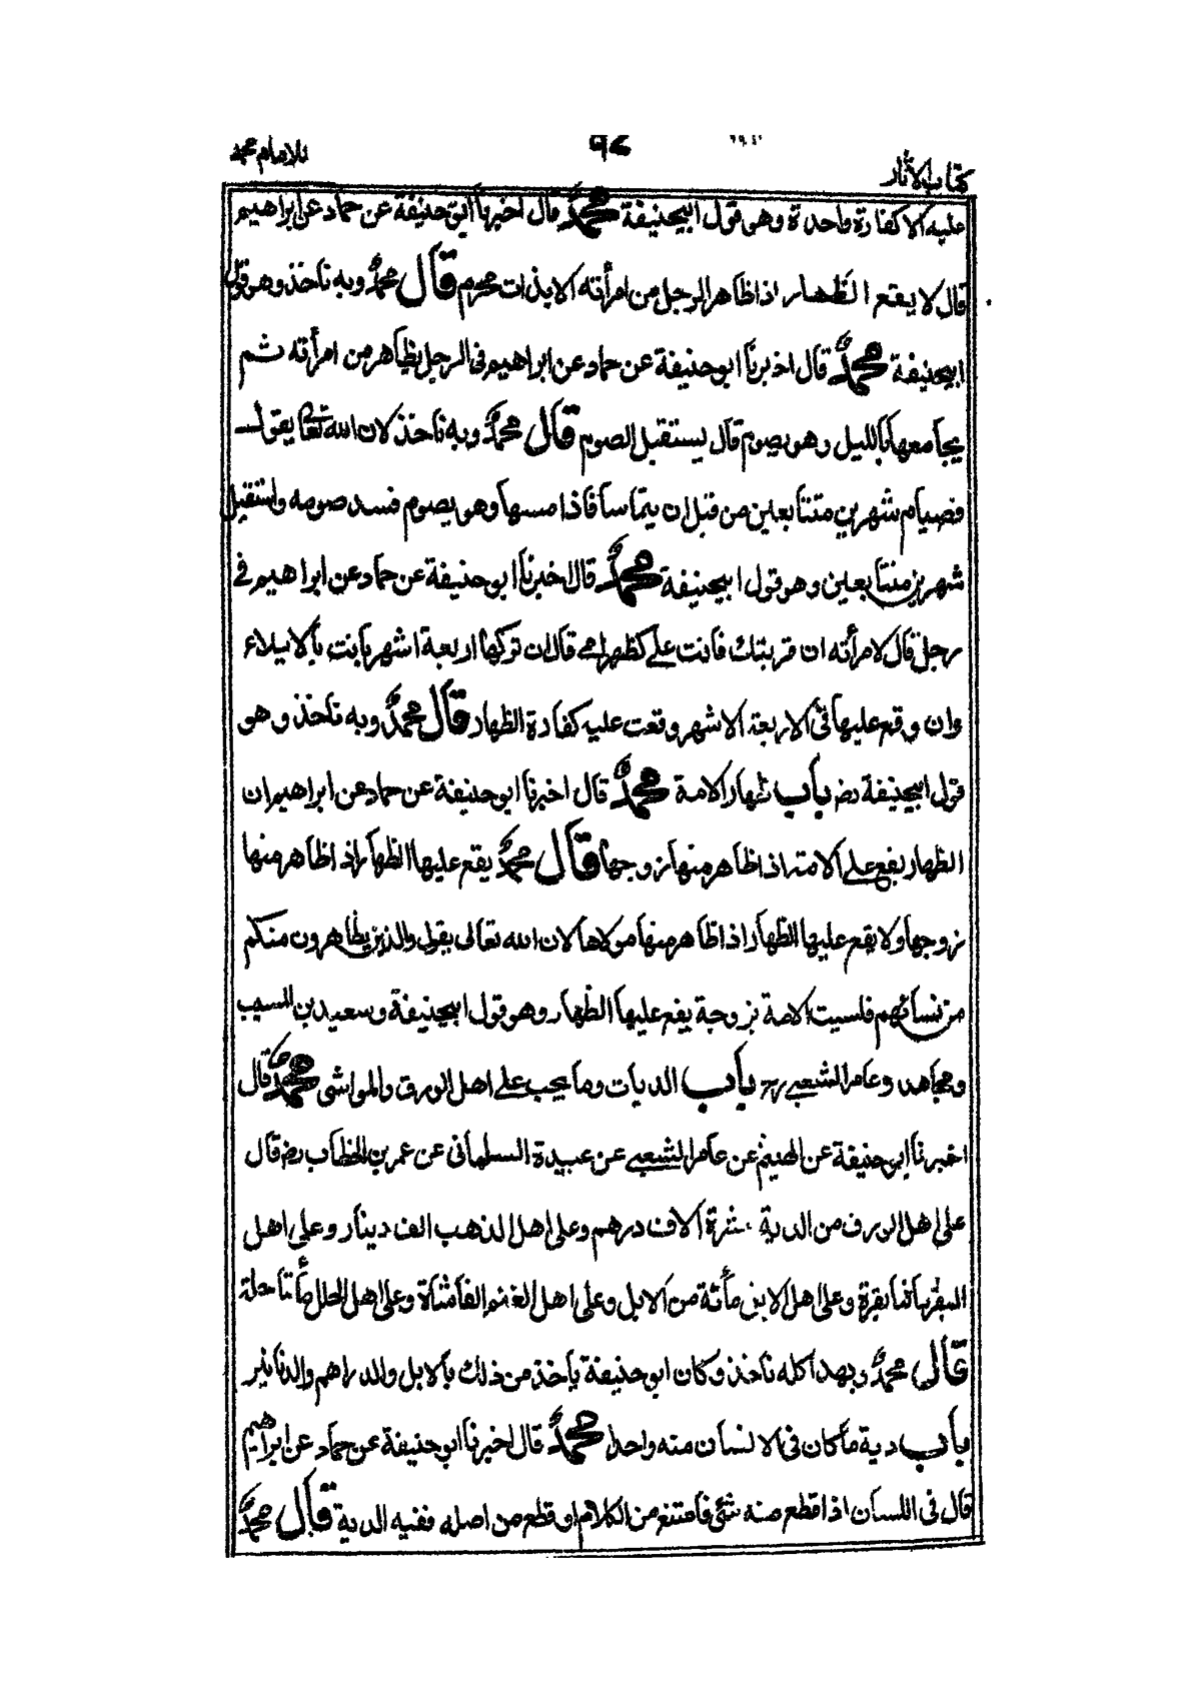 كتاب الآثار
٩٤
للامام محمد
عليه الا كفارة واحدة وهو قول ابيحنيفة محمدٌ قال اخبرنا ابو حنيفة عن حماد عن ابراهيم
قال لا يقع الظهار اذا ظاهر الرجل من امرأته الا بذات محرم قال محمدٌ وبه ناخذ وهو قول
ابيحنيفة محمدٌ قال اخبرنا ابو حنيفة عن حماد عن ابراهيم فى الرجل يظاهر من امرأته ثم
يجامعها بالليل وهو يصوم قال يستقبل الصوم قال محمدٌ وبه ناخذ لان الله تعالى يقول
فصيام شهرين متتابعين من قبل ان يتماسا فاذا مسها وهو يصوم فسد صومه واستقبل
شهرين متتابعين وهو قول ابيحنيفة محمدٌ قال اخبرنا ابو حنيفة عن حماد عن ابراهيم فى
رجل قال لامرأته ان قربتك فانت على كظهر امى قال ان تركها اربعة اشهر بانت بالايلاء
وان وقع عليها فى الاربعة الاشهر وقعت عليه كفارة الظهار قال محمدٌ وبه ناخذ وهو
قول ابيحنيفة رض باب ظهار الامة محمدٌ قال اخبرنا ابو حنيفة عن حماد عن ابراهيم ان
الظهار يقع على الامة اذا ظاهر منها زوجها قال محمدٌ يقع عليها الظهار اذا ظاهر منها
زوجها ولا يقع عليها الظهار اذا ظاهر منها مولاها لان الله تعالى يقول والذين يظاهرون منكم
من نسائهم فليست الامة بزوجة يقع عليها الظهار وهو قول ابيحنيفة وسعيد بن المسيب
ومجاهد وعامر الشعبى رح باب الديات وما يجب على اهل الورق والمواشى محمد قال
اخبرنا ابو حنيفة عن الهيثم عن عامر الشعبى عن عبيدة السلمانى عن عمر بن الخطاب رض قال
على اهل الورق من الدية عشرة الاف درهم وعلى اهل الذهب الف دينار وعلى اهل
البقر مأتا بقرة وعلى اهل الابل مأئة من الابل وعلى اهل الغنم الفا شاة وعلى اهل الحلل مأتا حلة
قال محمدٌ وبهذا كله ناخذ وكان ابو حنيفة يأخذ من ذلك بالابل والدراهم والدنانير
باب دية ما كان فى الانسان منه واحدا محمدٌ قال اخبرنا ابو حنيفة عن حماد عن ابراهيم
قال فى اللسان اذا قطع منه شئ فامتنع من الكلام او قطع من اصله ففيه الدية قال محمدٌ